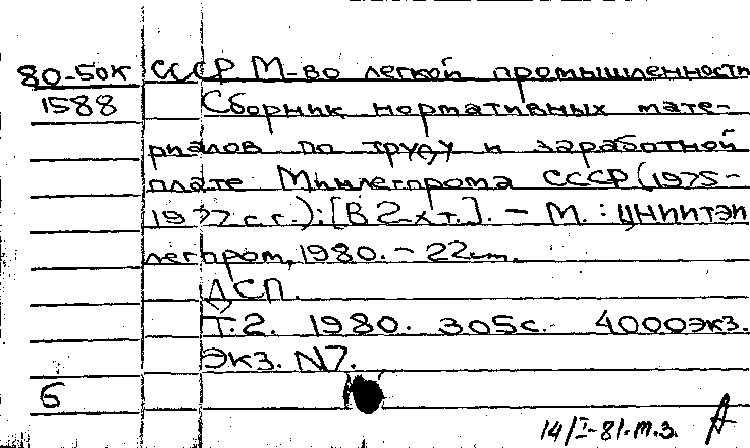 80-50к СССР М-во легкой промышленности
1588 Сборник нормативных мате-
риалов по труду и заработной
плате Минлегпрома СССР (1975-
1977 г.г.): [В 2-х т.]. - М.: ЦНИИТЭИ
легпром, 1980. - 22 см.
ДСП.
Т. 2. 1980. 305с. 4000экз.
Экз. N7.
б
14/I-81.м.з. А